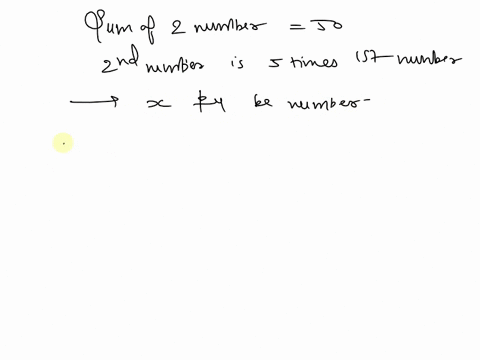 Sum of 2 number = 50
2nd number is 5 times 1st number
→ x & y be number-